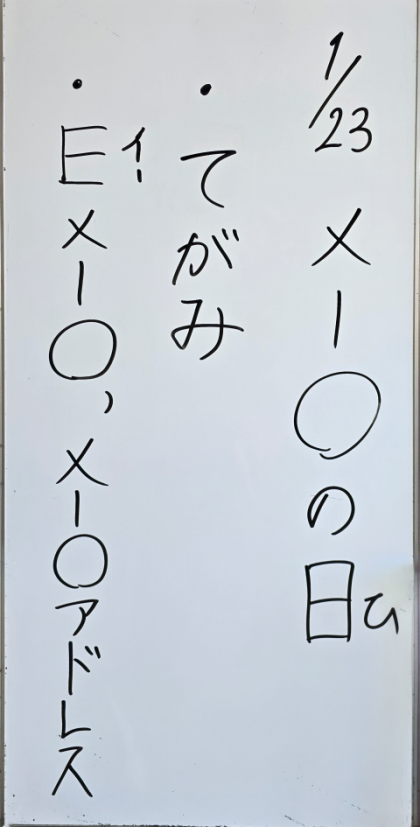 1/23 メー〇の日
ひ
・てがみ
・Eメー〇,メー〇アドレス
イー